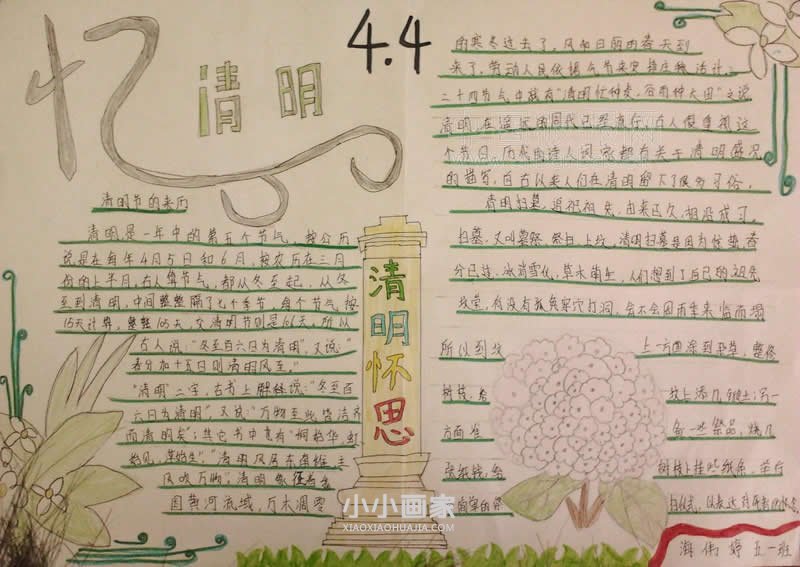 忆
清明
4.4
清明节的来历
清明,是一年中的第五个节气,按公历
就是在每年4月5日和6月,按农历在三月
份的上半月,古人算节气,都从冬至起,从冬
至到清明,中间整整隔了七个季节,每个节气按
15天计算,整整105天,交清明节则是106天,所以
古人说:“冬至百六日为清明”,又说:“
春分加十五日则清明风至。”
“清明”二字,古书上解释说:“冬至百
六日为清明”,又说:“万物至此皆洁齐
而清明矣”;其它书中竟有“桐始华,虹
始见,萍始生”,“清明风居东南维,主
风吹万物”,清明象征着冬
因黄河流域,万木凋零
清明怀思
的寒冬过去了,风和日丽的春天到
来了,劳动人民依据气节来安排庄稼活计,
二十四节气中就有“清明忙种麦,谷雨种大田”之说
清明,在遥远的周代已经流行,古人很重视这
个节日,历代的诗人词家都有关于清明盛况
的描写,自古以来人们在清明留下了很多习俗。
清明扫墓,追祀祖先,由来已久,相沿成习。
扫墓,又叫墓祭,祭扫,上坟,清明扫墓是因为时值春
分已过,冰消雪化,草木萌生,人们想到了自己的祖先
坟茔,有没有狐兔穿穴打洞,会不会因雨季来临而塌
所以到坟
上一方面除到杂草,整修
树枝,给
坟上添几锹土;另一
方面准
备一些祭品,烧几
张纸钱,给
树枝上挂些纸条,举行
简单的祭
扫仪式,以表达对死者的怀念。
小小画家
XIAOXIAOHUAJIA.COM
五一班